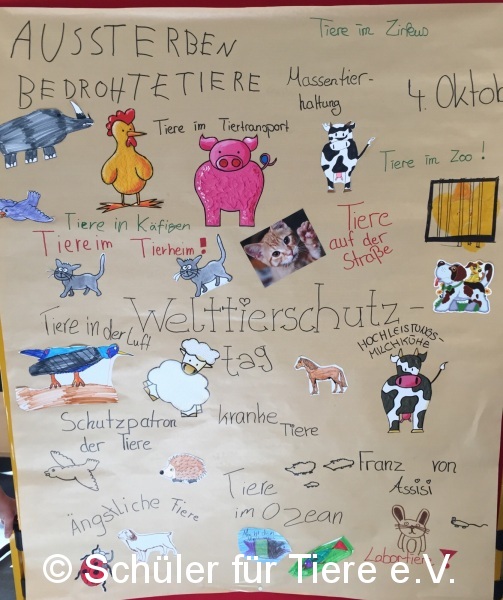 Tiere im Zirkus
AUSSTERBEN
BEDROHTETIERE
Massentier-
haltung
4. Oktob
Tiere im Tiertransport
Tiere im Zoo!
Tiere in Käfigen
Tiere im Tierheim!
Tiere
auf der
Straße
Welttierschutz-
tag
Tiere in der Luft
HOCHLEISTUNGS-
MILCHKÜHE
Schutzpatron
der Tiere
kranke
Tiere
Franz von
Assisi
Tiere
im Ozean
Ängstliche Tiere
Labortiere!
© Schüler für Tiere e.V.